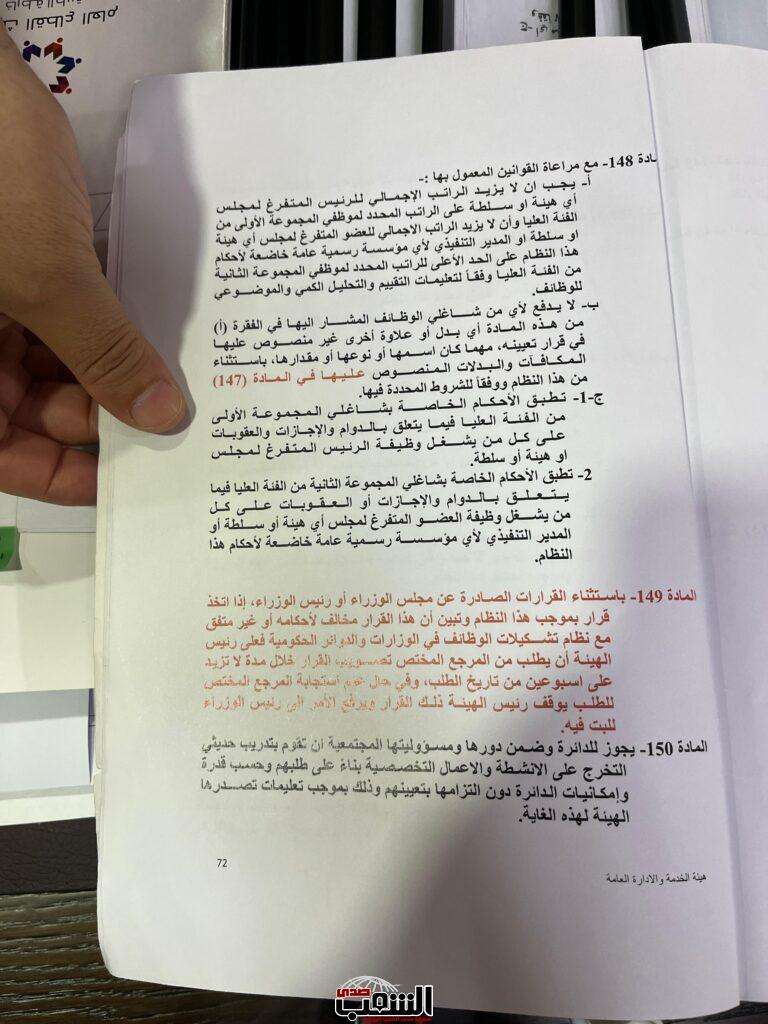 القطاع العام
مادة 148- مع مراعاة القوانين المعمول بها :-
أ- يجب ان لا يزيد الراتب الإجمالي للرئيس المتفرغ لمجلس
أي هيئة او سلطة على الراتب المحدد لموظفي المجموعة الأولى من
الفئة العليا وأن لا يزيد الراتب الاجمالي للعضو المتفرغ لمجلس أي هيئة
او سلطة او المدير التنفيذي لأي مؤسسة رسمية عامة خاضعة لأحكام
هذا النظام على الحد الأعلى للراتب المحدد لموظفي المجموعة الثانية
من الفئة العليا وفقاً لتعليمات التقييم والتحليل الكمي والموضوعي
للوظائف.
ب- لا يدفع لأي من شاغلي الوظائف المشار اليها في الفقرة (أ)
من هذه المادة أي بدل أو علاوة أخرى غير منصوص عليها
في قرار تعيينه، مهما كان اسمها أو نوعها أو مقدارها، باستثناء
المكافآت والبدلات المنصوص عليها في المادة (147)
من هذا النظام ووفقاً للشروط المحددة فيها.
ج-1- تطبق الأحكام الخاصة بشاغلي المجموعة الأولى
من الفئة العليا فيما يتعلق بالدوام والإجازات والعقوبات
على كل من يشغل وظيفة الرئيس المتفرغ لمجلس
او هيئة أو سلطة.
2- تطبق الأحكام الخاصة بشاغلي المجموعة الثانية من الفئة العليا فيما
يتعلق بالدوام والإجازات أو العقوبات على كل
من يشغل وظيفة العضو المتفرغ لمجلس أي هيئة أو سلطة أو
المدير التنفيذي لأي مؤسسة رسمية عامة خاضعة لأحكام هذا
النظام.
المادة 149- باستثناء القرارات الصادرة عن مجلس الوزراء أو رئيس الوزراء، إذا اتخذ
قرار بموجب هذا النظام وتبين أن هذا القرار مخالف لأحكامه أو غير متفق
مع نظام تشكيلات الوظائف في الوزارات والدوائر الحكومية فعلى رئيس
الهيئة أن يطلب من المرجع المختص تصويب القرار خلال مدة لا تزيد
على اسبوعين من تاريخ الطلب، وفي حال عدم استجابة المرجع المختص
للطلب يوقف رئيس الهيئة ذلك القرار ويرفع الأمر الى رئيس الوزراء
للبت فيه.
المادة 150- يجوز للدائرة وضمن دورها ومسؤوليتها المجتمعية ان تقوم بتدريب حديثي
التخرج على الانشطة والاعمال التخصصية بناءً على طلبهم وحسب قدرة
وإمكانيات الدائرة دون التزامها بتعيينهم وذلك بموجب تعليمات تصدرها
الهيئة لهذه الغاية.
72
هيئة الخدمة والادارة العامة
صدى الشعب